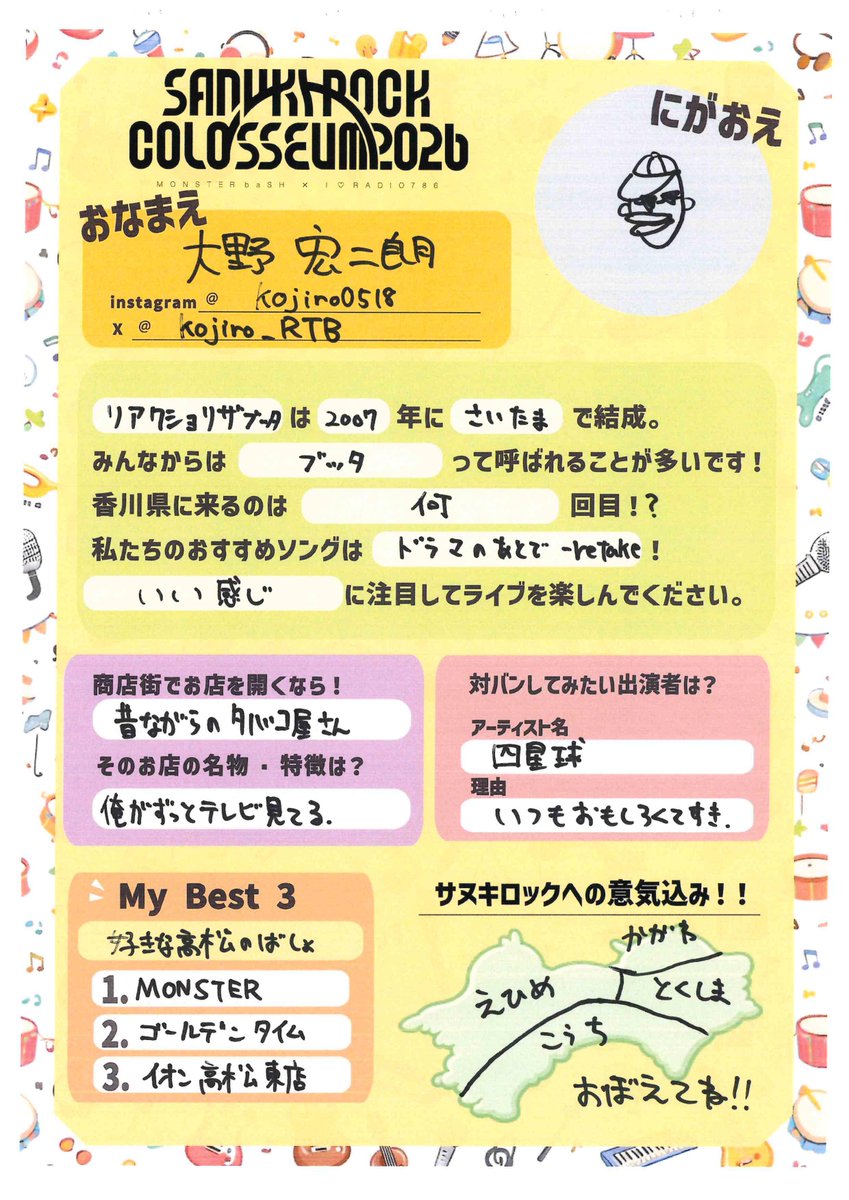 SANUKI ROCK
COLOSSEUM2026
MONSTER baSH × I♡RADIO786
にがおえ
おなまえ
大野 宏二朗
instagram @ kojiro0518
X @ kojiro_RTB
リアクションザブッタ は 2007 年に さいたま で結成。
みんなからは ブッタ って呼ばれることが多いです！
香川県に来るのは 何 回目！？
私たちのおすすめソングは ドラマのあとで -retake ！
いい感じ に注目してライブを楽しんでください。
商店街でお店を開くなら！
昔ながらの タバコ屋さん
そのお店の名物・特徴は？
俺がずっとテレビ見てる.
対バンしてみたい出演者は？
アーティスト名
四星球
理由
いつもおもしろくてすき.
My Best 3
好きな高松のばしょ
1. MONSTER
2. ゴールデンタイム
3. イオン高松東店
サヌキロックへの意気込み！！
かがわ
えひめ
とくしま
こうち
おぼえてね!!